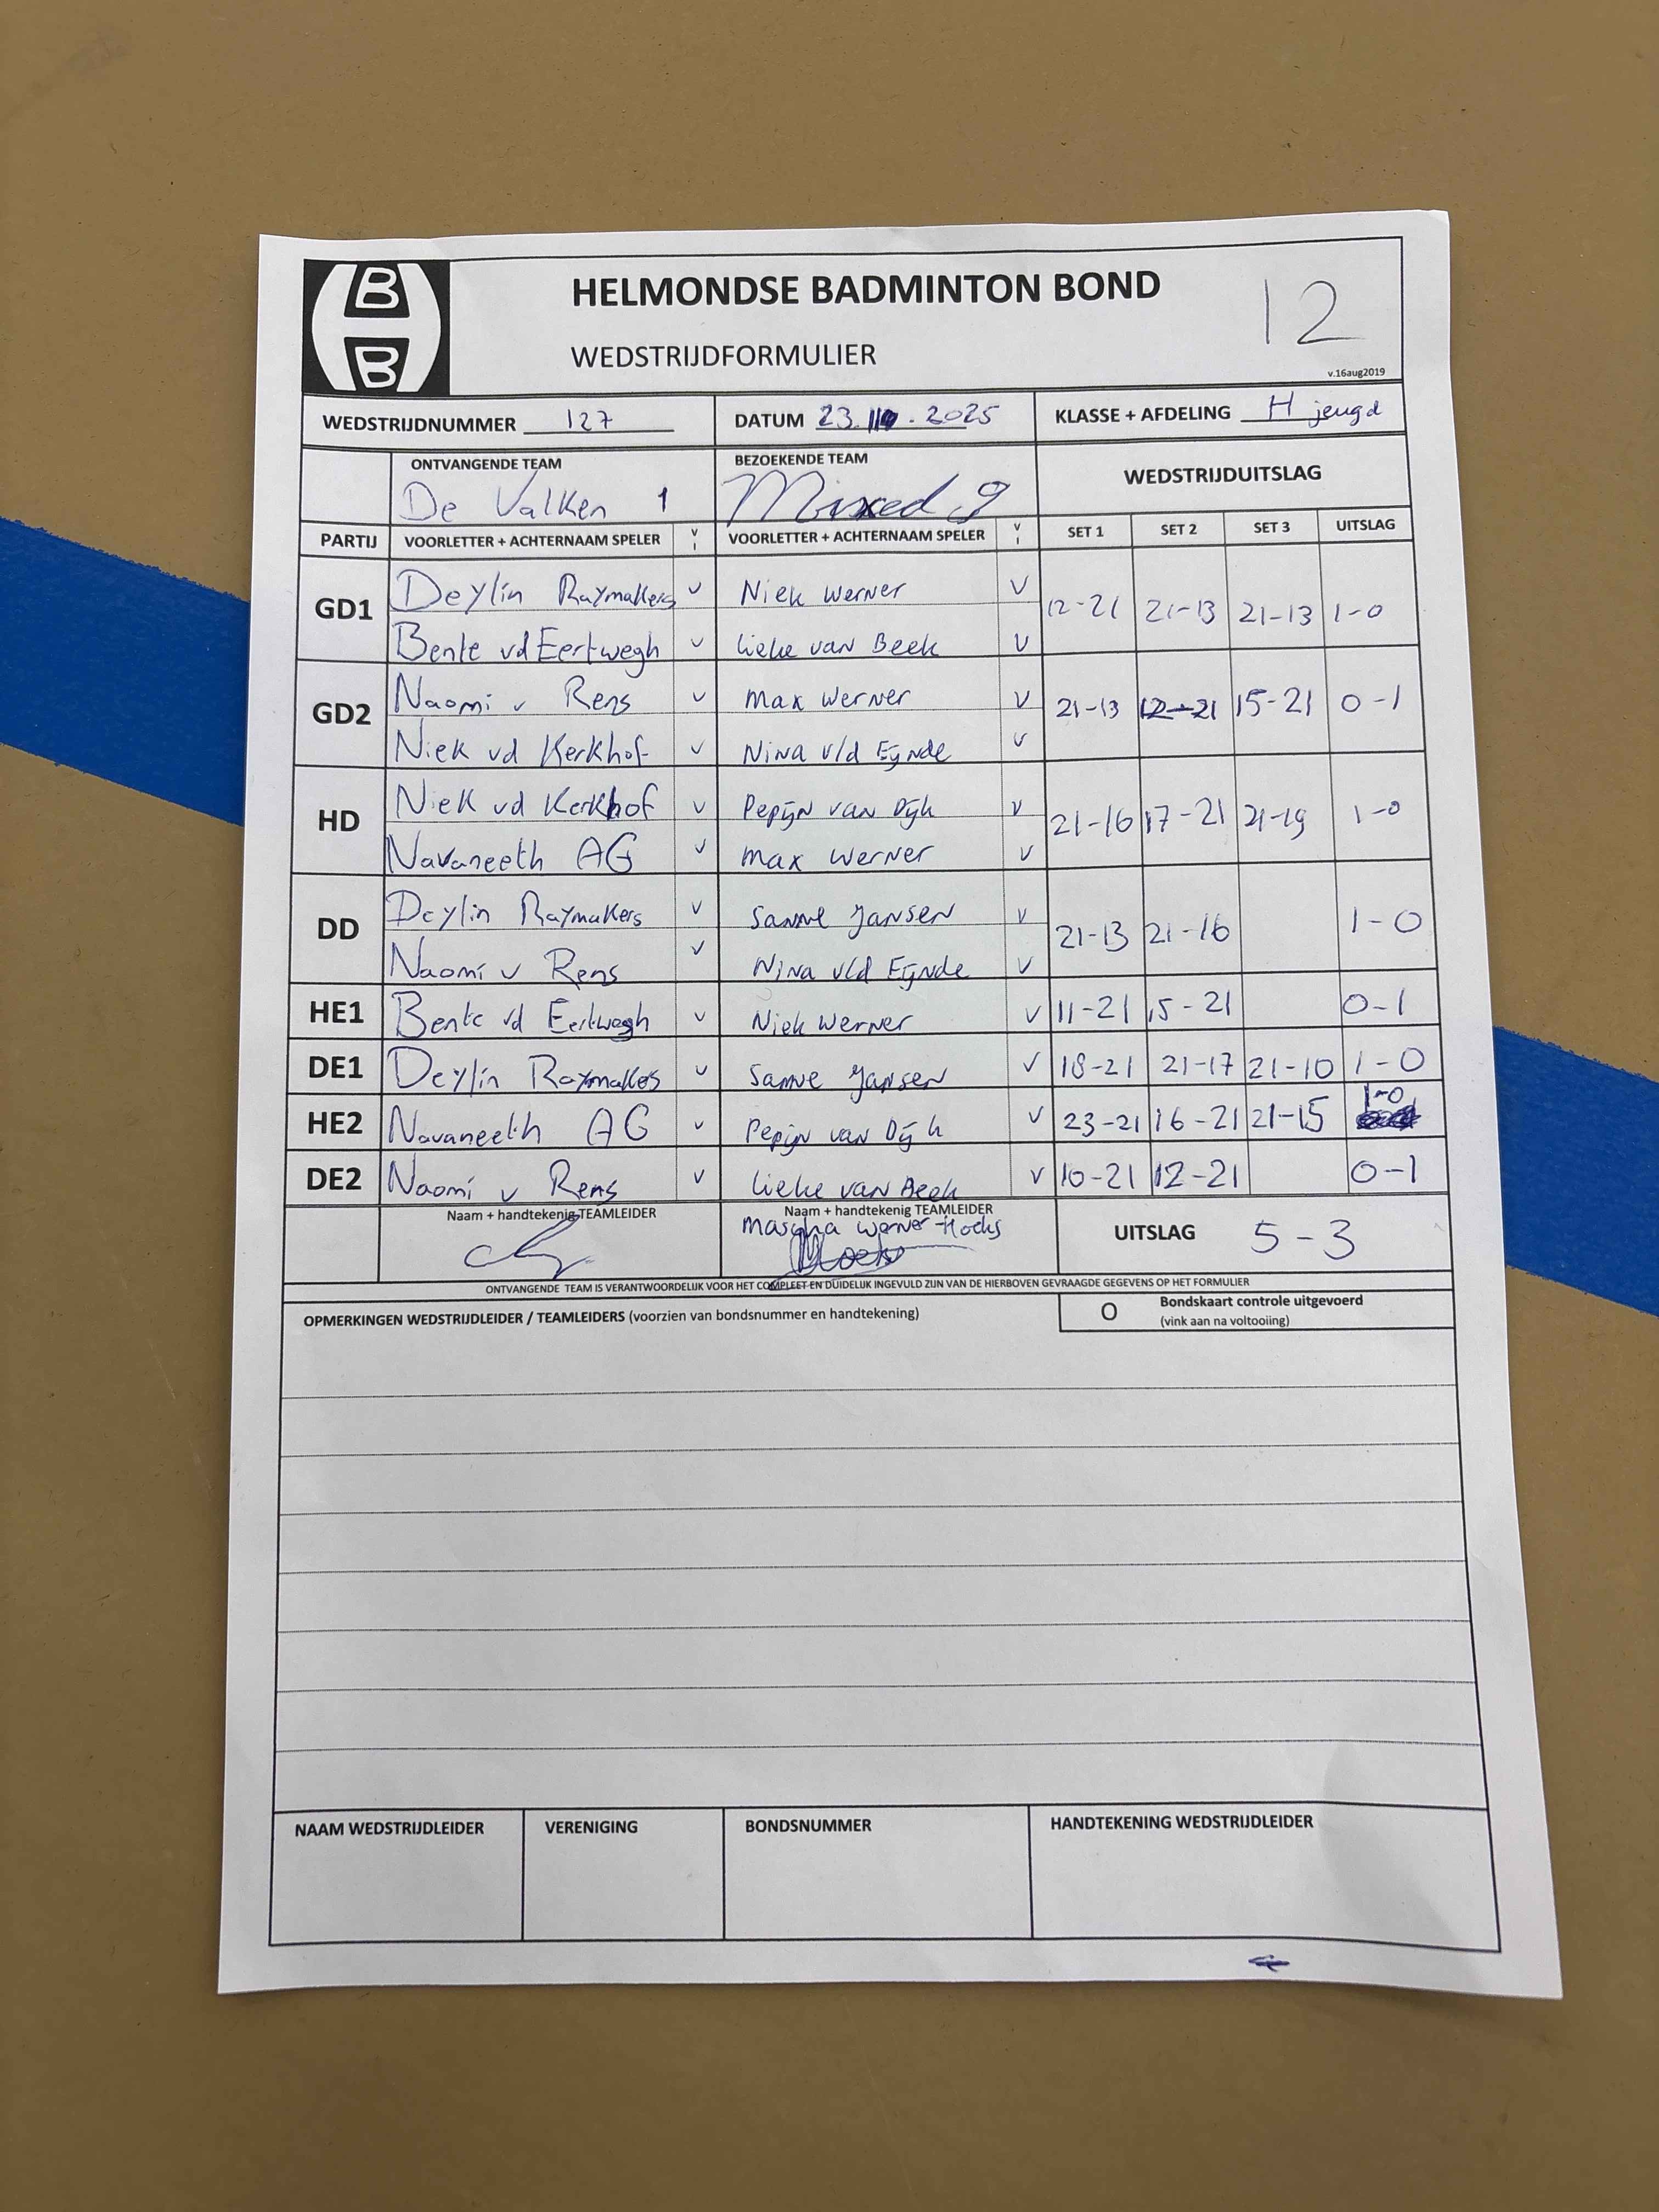 B
B
HELMONDSE BADMINTON BOND
12
WEDSTRIJDFORMULIER
v.16aug2019
WEDSTRIJDNUMMER 127 DATUM 23. 2025 KLASSE + AFDELING H jeugd
ONTVANGENDE TEAM BEZOEKENDE TEAM WEDSTRIJDUITSLAG
De Valken 1 Mixed 9
PARTIJ VOORLETTER + ACHTERNAAM SPELER V I VOORLETTER + ACHTERNAAM SPELER V I SET 1 SET 2 SET 3 UITSLAG
GD1 Deylin Raymakers v Niek Werner v 12-21 21-13 21-13 1-0
Bente vd Eertwegh v Lieke van Beek v
GD2 Naomi v Rens v Max Werner v 21-13 12-21 15-21 0-1
Niek vd Kerkhof v Nina v/d Eynde v
HD Niek vd Kerkhof v Pepijn van Dijk v 21-16 17-21 21-19 1-0
Navaneeth AG v Max Werner v
DD Deylin Raymakers v Sanne Jansen v 21-13 21-16 1-0
Naomi v Rens v Nina v/d Eynde v
HE1 Bente vd Eertwegh v Niek Werner v 11-21 15-21 0-1
DE1 Deylin Raymakers v Sanne Jansen v 18-21 21-17 21-10 1-0
HE2 Navaneeth AG v Pepijn van Dijk v 23-21 16-21 21-15 1-0
DE2 Naomi v Rens v Lieke van Beek v 10-21 12-21 0-1
Naam + handtekenig TEAMLEIDER Naam + handtekenig TEAMLEIDER UITSLAG 5-3
Mascha Werner-Hoeks
ONTVANGENDE TEAM IS VERANTWOORDELIJK VOOR HET COMPLEET EN DUIDELIJK INGEVULD ZIJN VAN DE HIERBOVEN GEVRAAGDE GEGEVENS OP HET FORMULIER
OPMERKINGEN WEDSTRIJDLEIDER / TEAMLEIDERS (voorzien van bondsnummer en handtekening) O Bondskaart controle uitgevoerd
(vink aan na voltooiing)
NAAM WEDSTRIJDLEIDER VERENIGING BONDSNUMMER HANDTEKENING WEDSTRIJDLEIDER